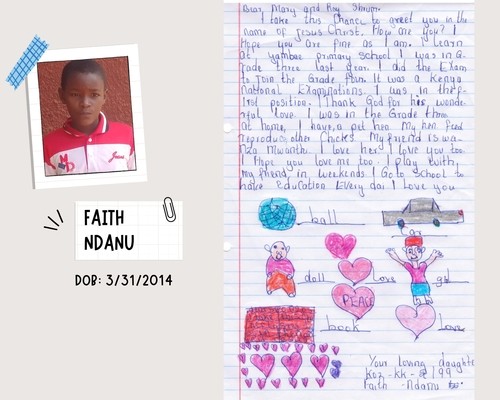 FAITH
NDANU
DOB: 3/31/2014
Dear, Mary and Roy Shrum.
I take this chance to greet you in the
name of Jesus Christ. How are you? I
Hope you are fine as I am. I learn
At Primary School I was in G-
rade three last year. I did the Exam
to Join the Grade four. It was a Kenya
National Examinations. I was in the f-
irst position. I thank God for his, wonde-
rful love. I was in the Grade three
at home, I have a pet hen. My hen feed
reproduc, other Chicks. My friend is wa-
nza Mwanthi. I love her. I love you too.
I Hope you love me too. I play with,
my friend in weekends I Go to School to
have Education Every dai I Love you
ball
Car
doll
Love
girl
PEACE
book
Love
Your loving daughte
Faith Ndanu